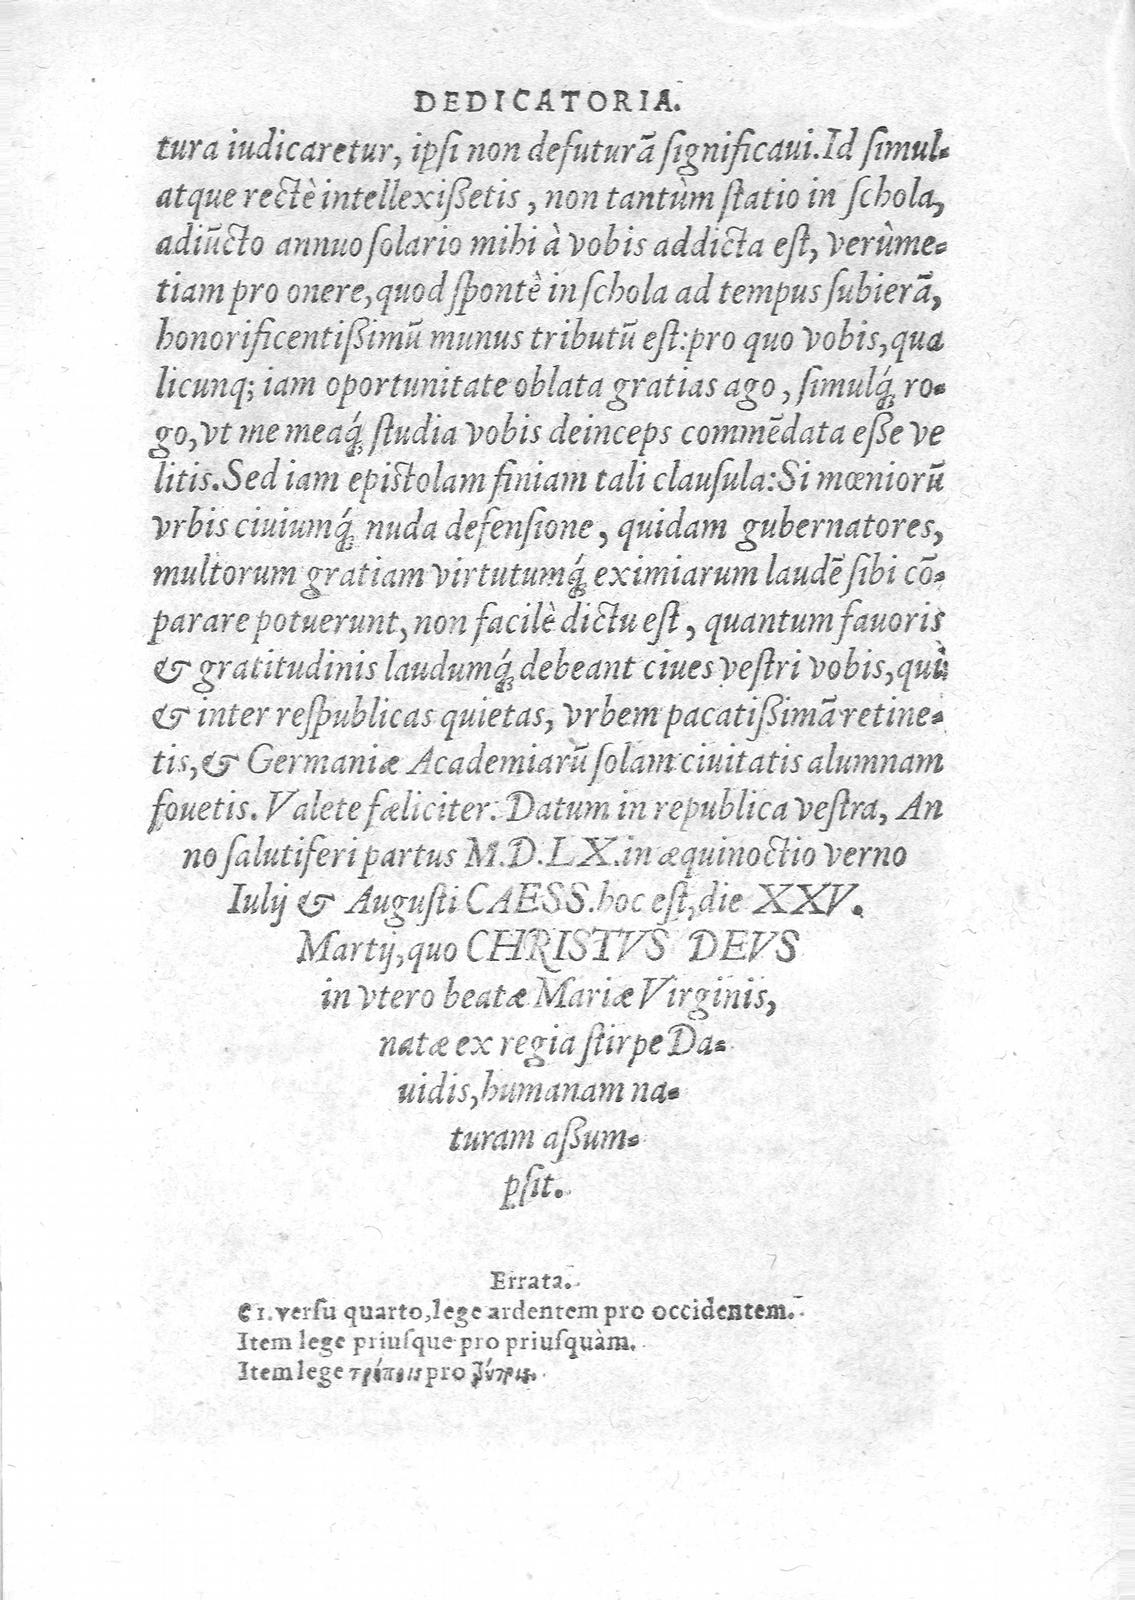 DEDICATORIA.
tura iudicaretur, ipſi non defuturā ſignificaui. Id ſimul-
atque rectè intellexiſsetis, non tantùm ſtatio in ſchola,
adiūcto annuo ſolario mihi à vobis addicta eſt, verùme-
tiam pro onere, quod ſpontè in ſchola ad tempus ſubierā,
honorificentiſsimū munus tributū eſt: pro quo vobis, qua
licunq; iam oportunitate oblata gratias ago, ſimulq́; ro-
go, vt me meaq́; ſtudia vobis deinceps commēdata eſse ve
litis. Sed iam epiſtolam finiam tali clauſula: Si mœniorū
vrbis ciuiumq́; nuda defenſione, quidam gubernatores,
multorum gratiam virtutumq́; eximiarum laudē ſibi cō-
parare potuerunt, non facilè dictu eſt, quantum fauoris
& gratitudinis laudumq́; debeant ciues veſtri vobis, qui
& inter reſpublicas quietas, vrbem pacatiſsimā retine-
tis, & Germaniæ Academiarū ſolam ciuitatis alumnam
fouetis. Valete fæliciter. Datum in republica veſtra, An
no ſalutiferi partus M.D.LX. in æquinoctio verno
Iulij & Auguſti CAESS. hoc eſt, die XXV.
Martij, quo CHRISTVS DEVS
in vtero beatæ Mariæ Virginis,
natæ ex regia ſtirpe Da-
uidis, humanam na-
turam aſsum-
pſit.
Errata.
C 1. verſu quarto, lege ardentem pro occidentem.
Item lege priuſque pro priuſquàm.
Item lege pro